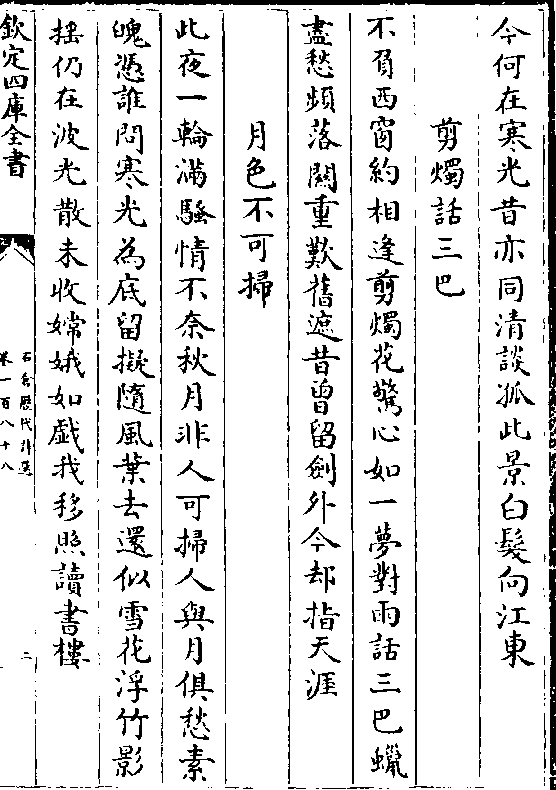 今何在寒光昔亦同清談孤此景白髮向江東
剪燭話三巴
不負西窗約相逢剪燭花驚心如一夢對雨話三巴蠟
盡愁頻落關重歎舊遮昔曾留劍外今却指天涯
月色不可掃
此夜一輪滿騷情不奈秋月非人可掃人與月俱愁素
魄憑誰問寒光為底留擬隨風葉去還似雪花浮竹影
揺仍在波光散未收嫦娥如戲我移照讀書樓
欽定四庫全書
石倉歷代詩選
卷一百八十八
二